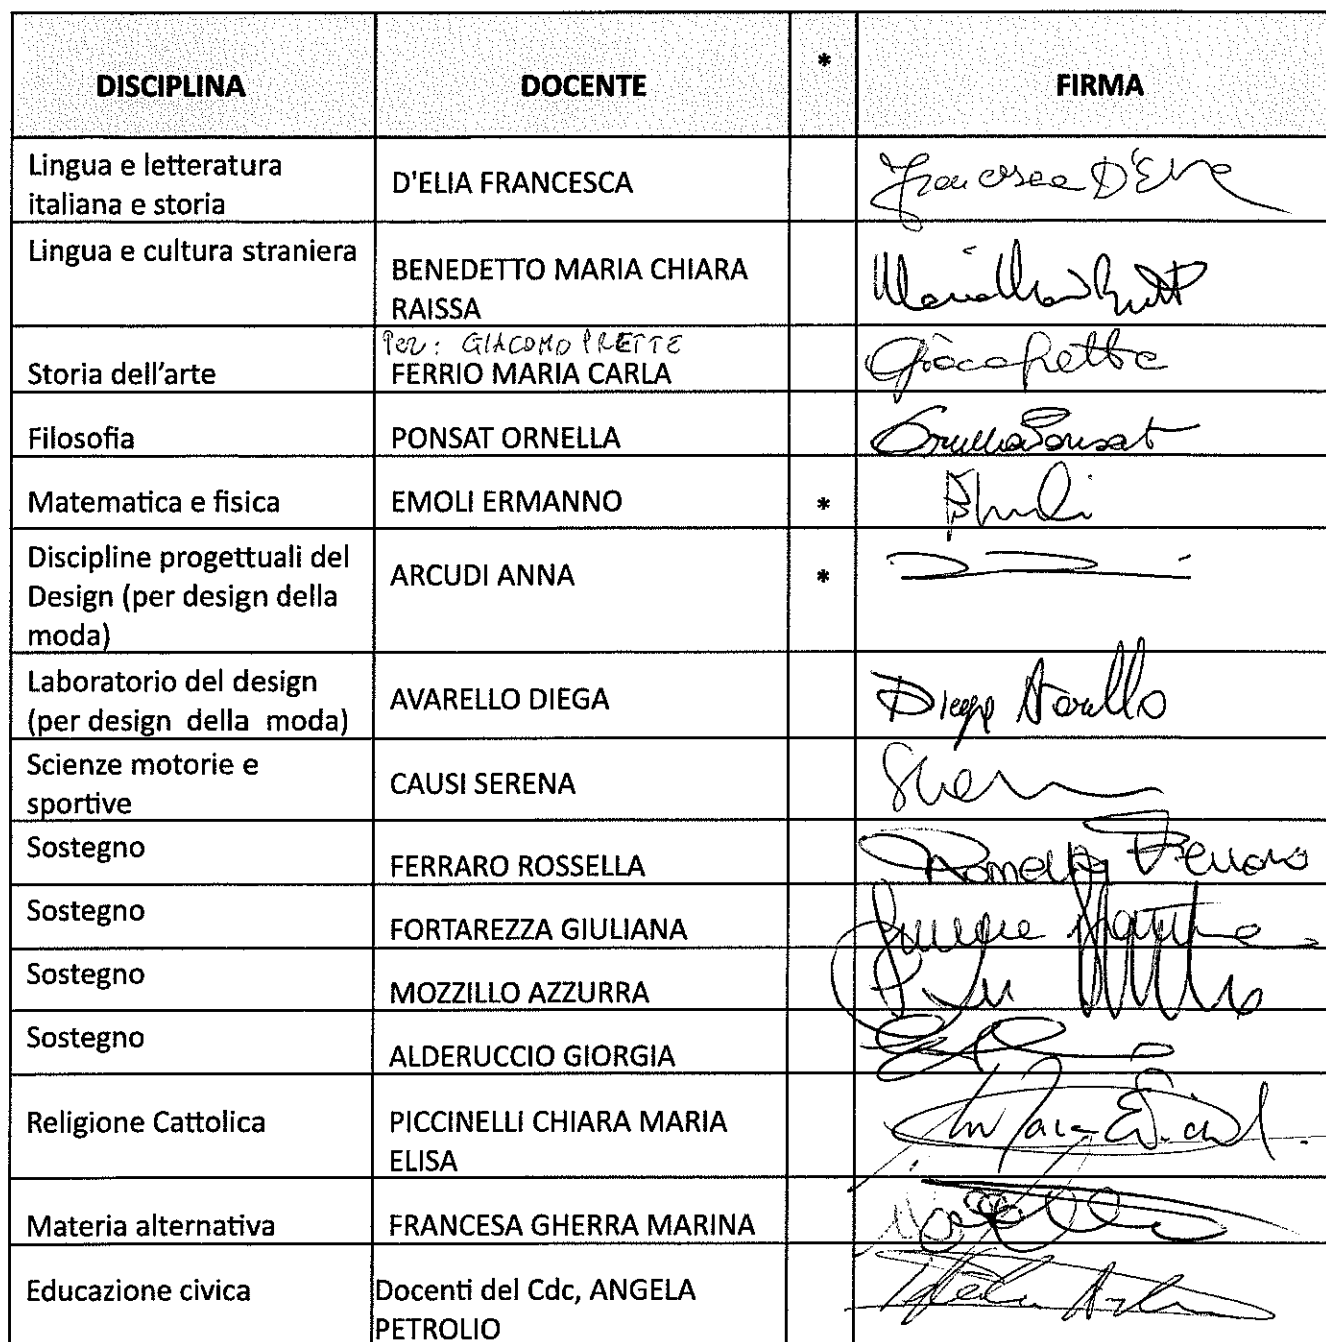 DISCIPLINA DOCENTE * FIRMA
Lingua e letteratura
italiana e storia
D'ELIA FRANCESCA
Francesca D'Elia
Lingua e cultura straniera
BENEDETTO MARIA CHIARA
RAISSA
Per: GIACOMO PRETTE
Storia dell'arte
FERRIO MARIA CARLA
Filosofia
PONSAT ORNELLA
Ornella Ponsat
Matematica e fisica
EMOLI ERMANNO
*
Discipline progettuali del
Design (per design della
moda)
ARCUDI ANNA
*
Laboratorio del design
(per design della moda)
AVARELLO DIEGA
Scienze motorie e
sportive
CAUSI SERENA
Sostegno
FERRARO ROSSELLA
Ferraro
Sostegno
FORTAREZZA GIULIANA
Sostegno
MOZZILLO AZZURRA
Sostegno
ALDERUCCIO GIORGIA
Religione Cattolica
PICCINELLI CHIARA MARIA
ELISA
Materia alternativa
FRANCESA GHERRA MARINA
Educazione civica
Docenti del Cdc, ANGELA
PETROLIO